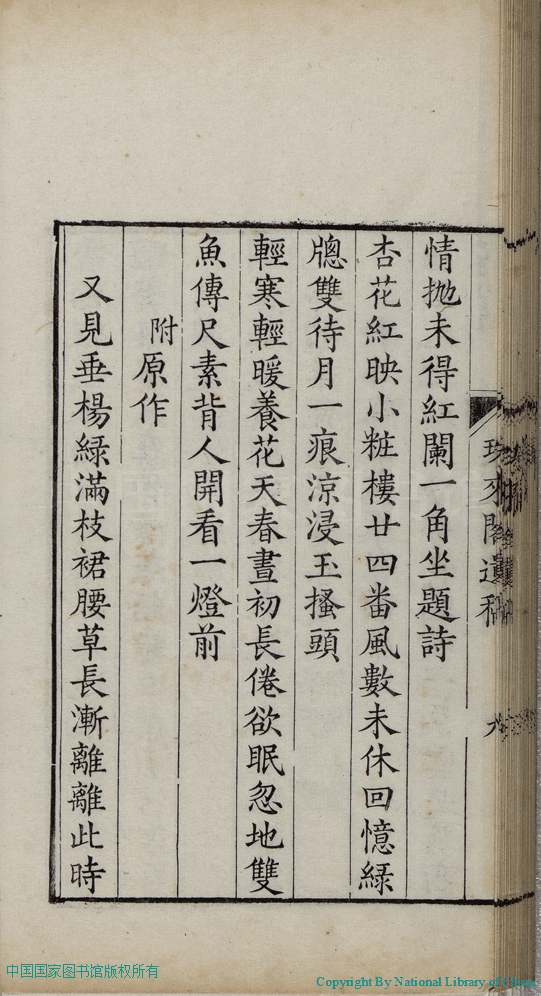 情抛未得紅闌一角坐題詩
杏花紅映小粧樓廿四番風數未休回憶綠
牕雙待月一痕涼浸玉搔頭
輕寒輕暖養花天春晝初長倦欲眠忽地雙
魚傳尺素背人開看一燈前
附原作
又見垂楊綠滿枝裙腰草長漸離離此時
遺稿
六
中国国家图书馆版权所有
Copyright By National Library of China